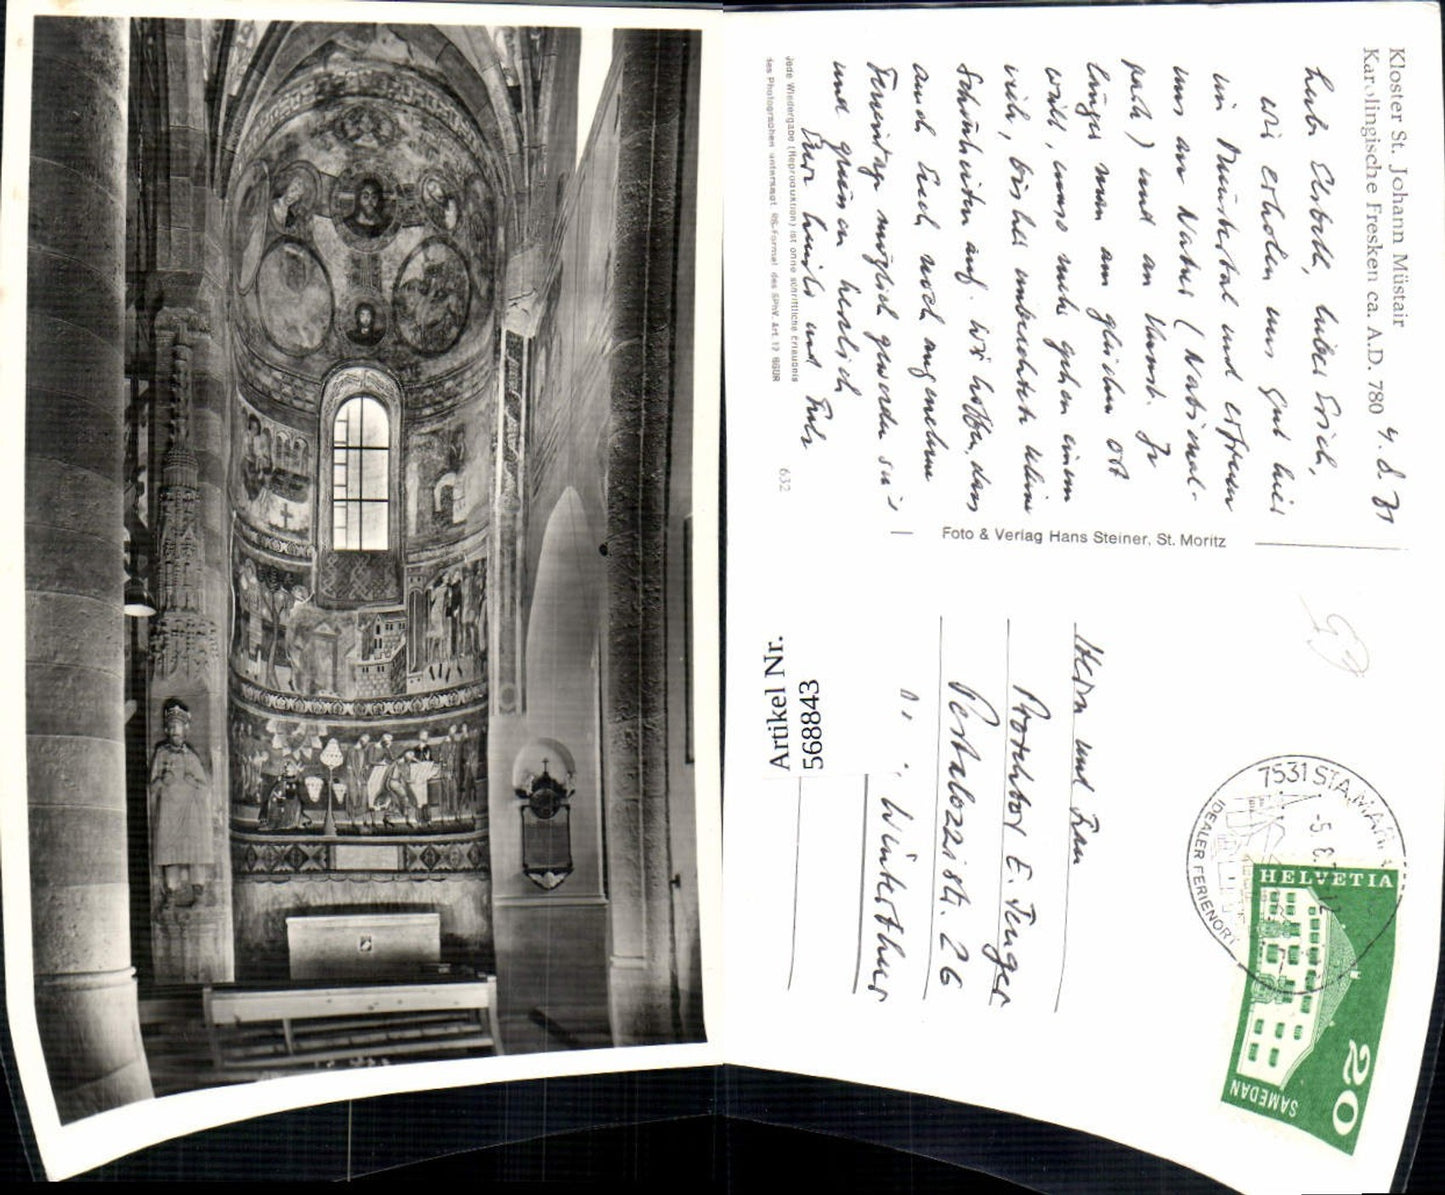 Kloster St. Johann Müstair
Karolingische Fresken ca. A.D. 780
4. 8. 71
Liebe Elsbeth, lieber Erich,
wir erholen uns gut hier
im Münstertal und erfreuen
uns an Natur (National-
park) und an Kunst. Je
länger man am gleichen Ort
weilt, umso mehr gehen einem
viele, bisher unbeachtete kleine
Schönheiten auf. Wir hoffen, dass
auch Euch noch angenehme
Ferientage möglich geworden sei's
und grüssen herzlich
Eure und
Jede Wiedergabe (Reproduktion) ist ohne schriftliche Erlaubnis
des Photographen untersagt. RS-Formel des SPhV. Art. 17 BGUR
632
Foto & Verlag Hans Steiner, St. Moritz
Herrn und Frau
Prof. E. Tenger
Pestalozzistr. 26
Winterthur
Artikel Nr.
568843
7531 STA. MARIA
-5. 8. 7
IDEALER FERIENORT
HELVETIA
SAMEDAN
20